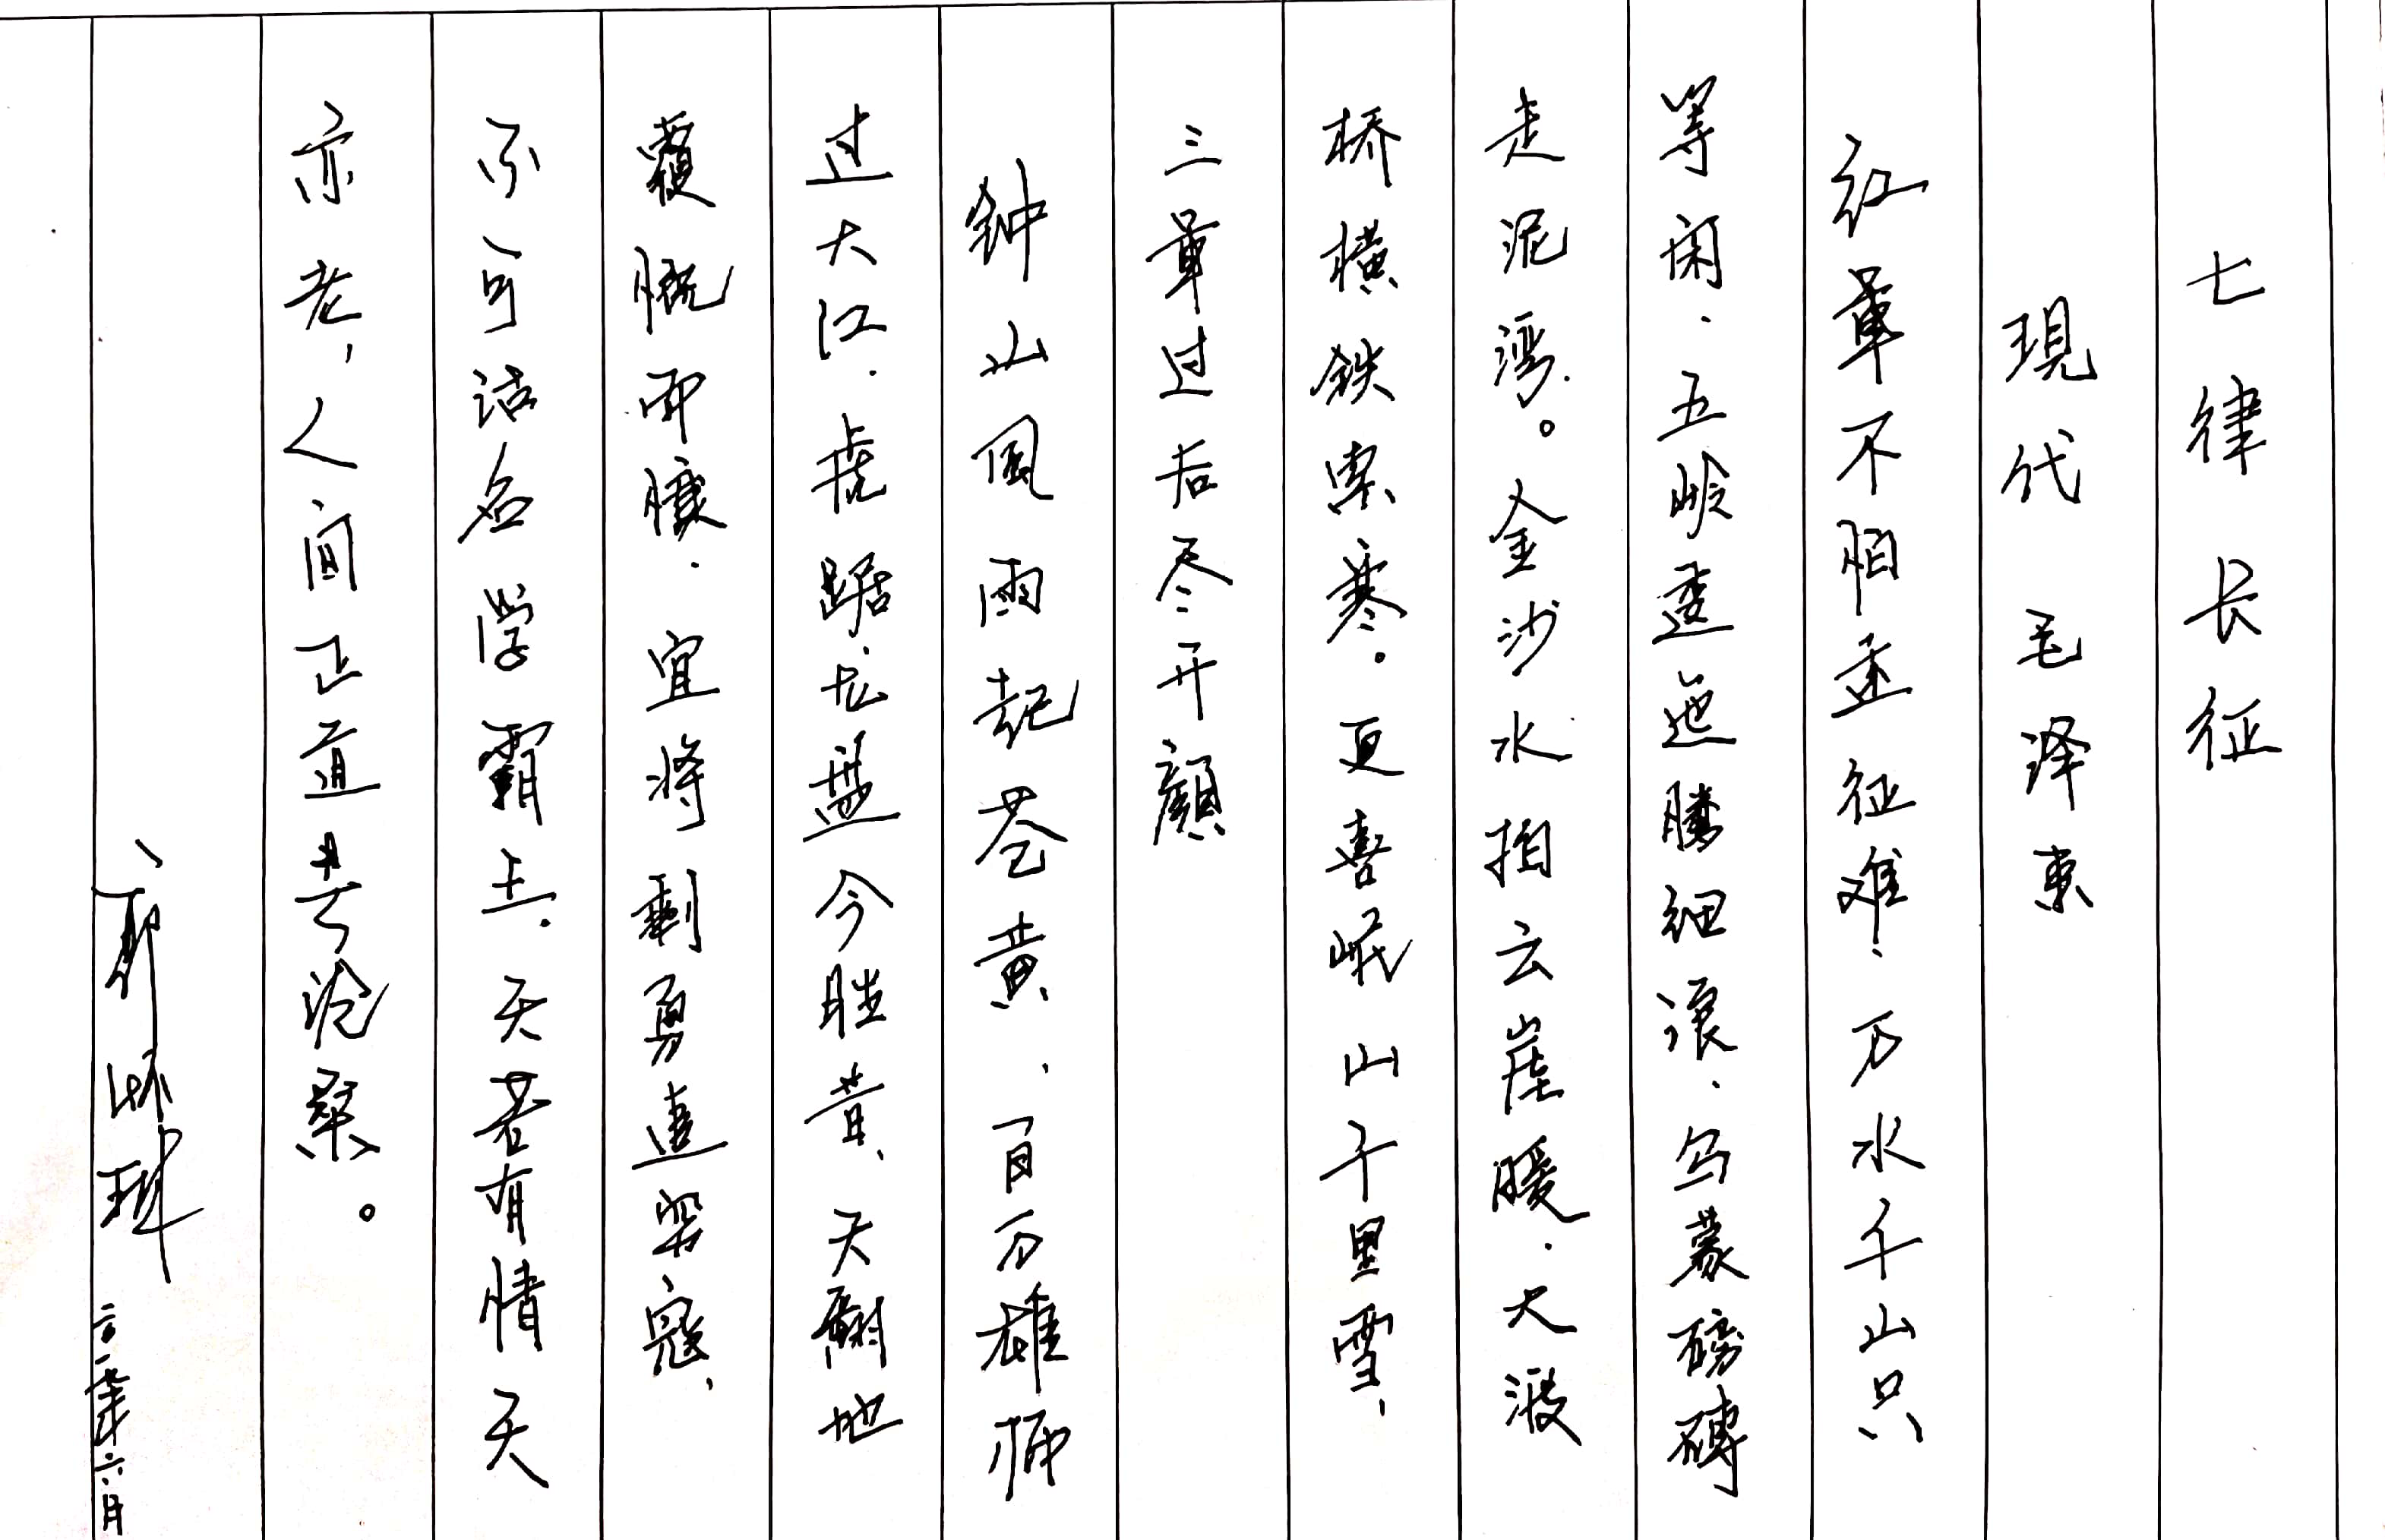 七律长征
現代 毛泽東
红軍不怕远征难.万水千山只
等闲.五岭逶迤腾细浪.乌蒙磅礴
走泥湾。金沙水拍云崖暖.大渡
桥横铁索寒。更喜岷山千里雪、
三軍过后尽开顔
钟山风雨起苍黄.百万雄师
过大江.虎踞龙盘今胜昔、天翻地
覆慨而慷.宜将剩勇追穷寇、
不可沽名学霸王.天若有情天
亦老,人间正道是沧桑。
年六月